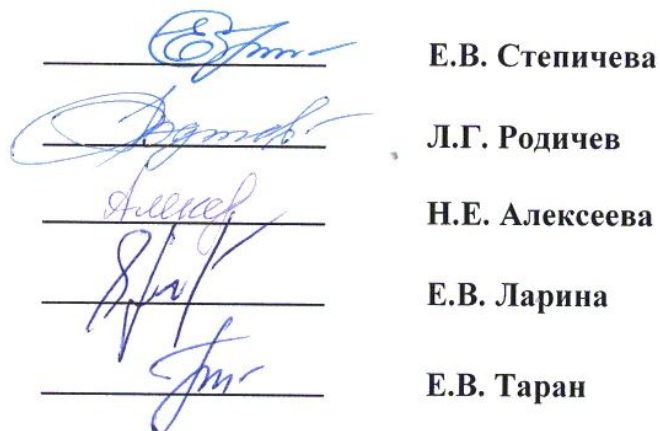 Е.В. Степичева
Л.Г. Родичев
Алексе Н.Е. Алексеева
Е.В. Ларина
Е.В. Таран